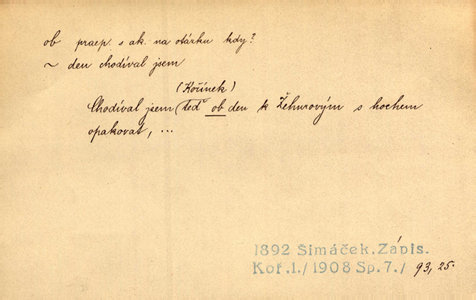 ob praep. s ak. na otázku kdy?
~ den chodíval jsem
(Kořínek)
Chodíval jsem (teď ob den k Žehurovým s hochem
opakovat, ...
1892 Šimáček. Zápis.
Koř.1./1908 Sp.7./ 93, 25.